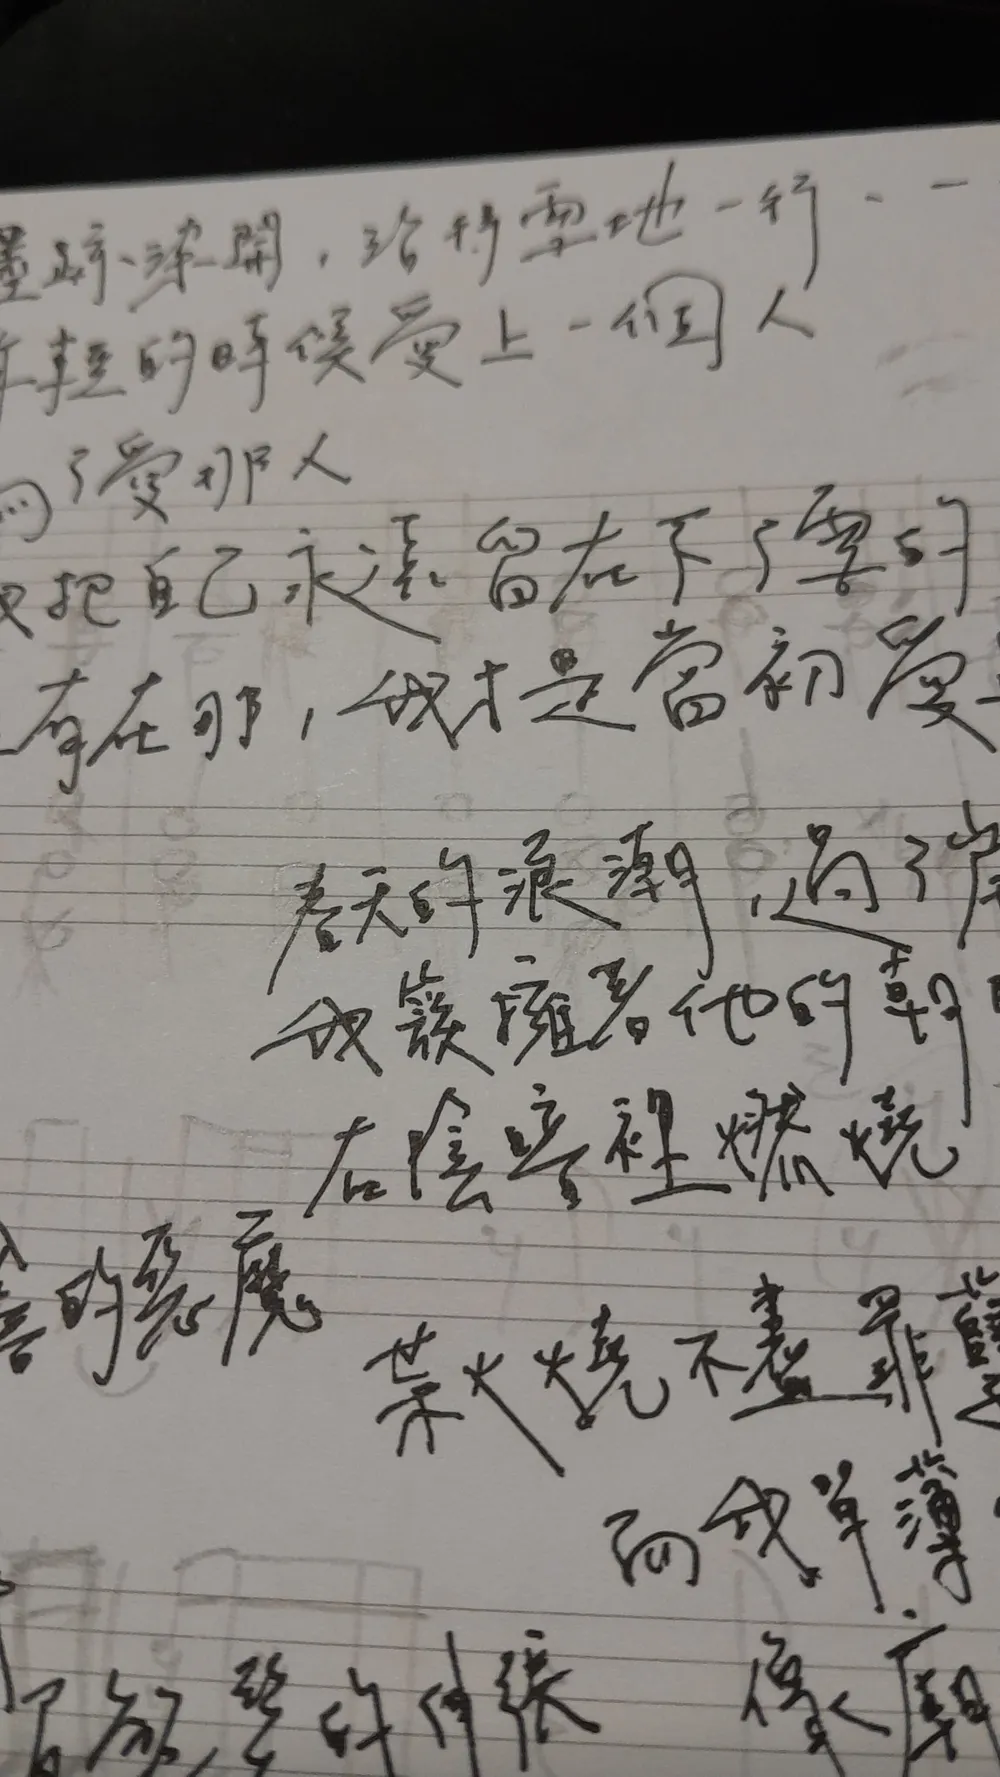 墨跡染開,沿特雪地一行、一
年輕的時候愛上一個人
為了愛那人
我把自己永遠留在下了雪的
有在那,我才是當初愛
春天的浪潮,過了岸
我簇擁著他的朝
在陰暗裡燃燒
的惡魔
業火燒不盡罪孽
而我單薄
了解 的伸張 像 廟